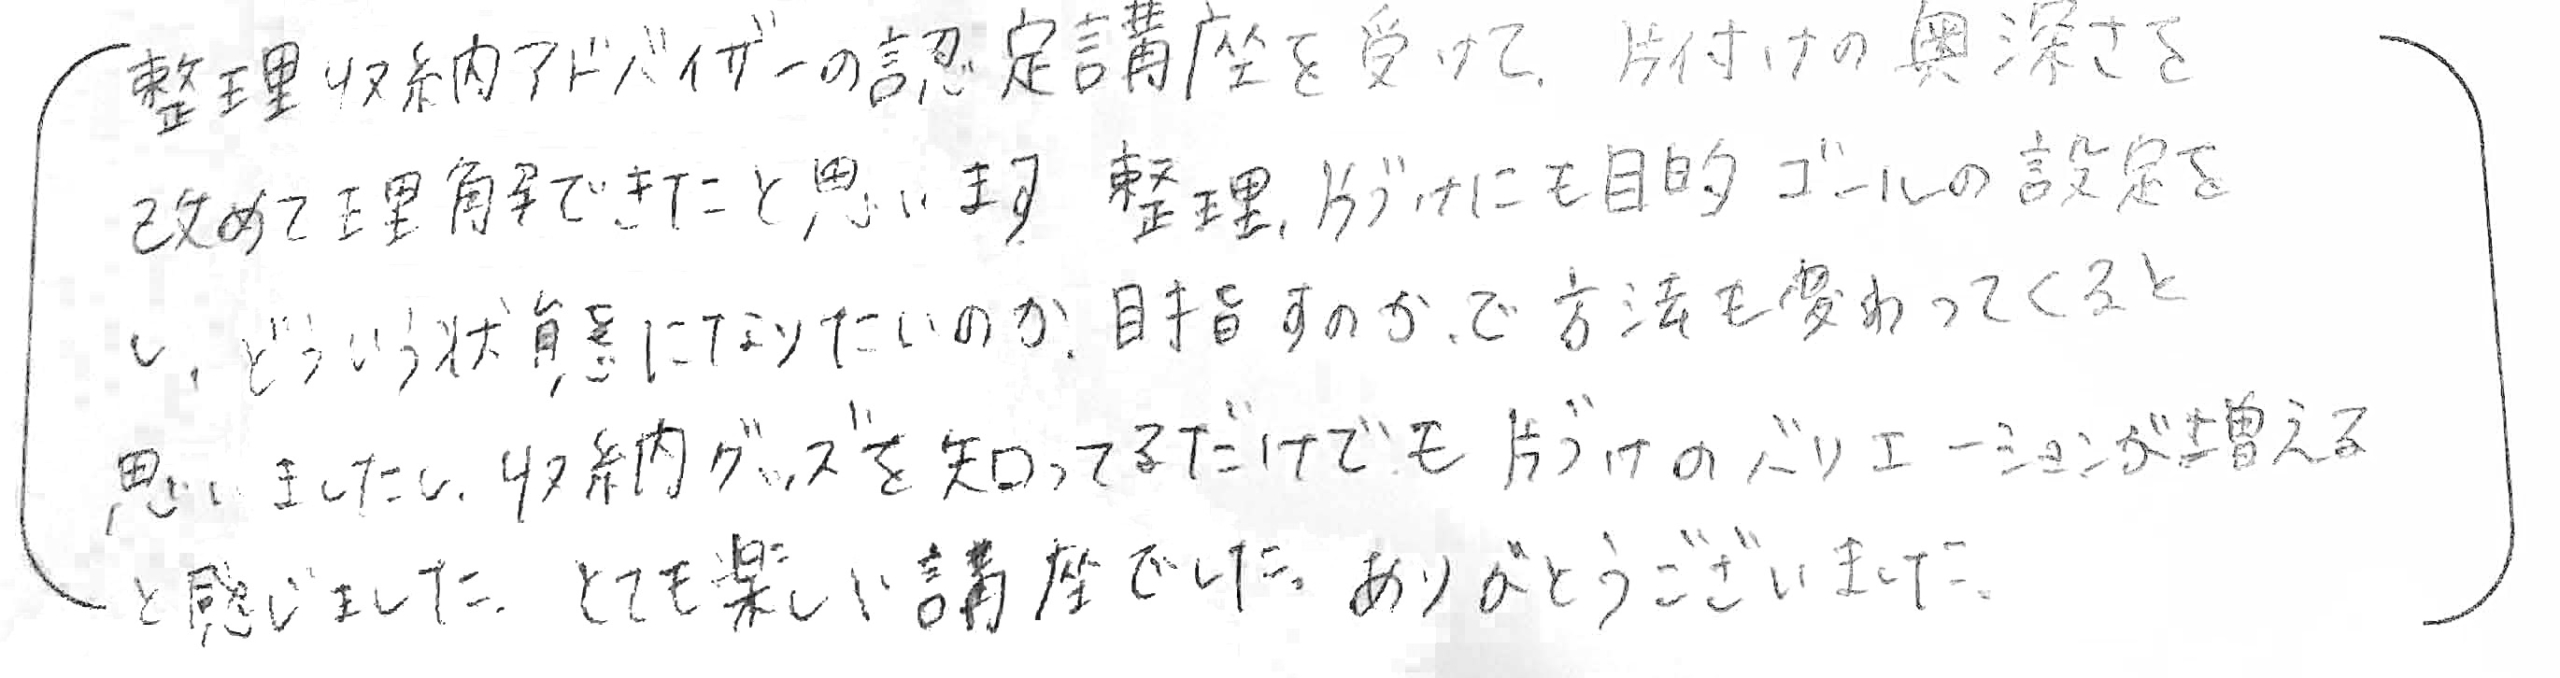 整理収納アドバイザーの認定講座を受けて、片付けの奥深さを
改めて理解できたと思います 整理、片づけにも目的 ゴールの設定を
し、どういう状態になりたいのか、目指すのか、で方法も変わってくると
思いましたし、収納グッズを知ってるだけでも片づけのバリエーションが増える
と感じました。とても楽しい講座でした。ありがとうございました。